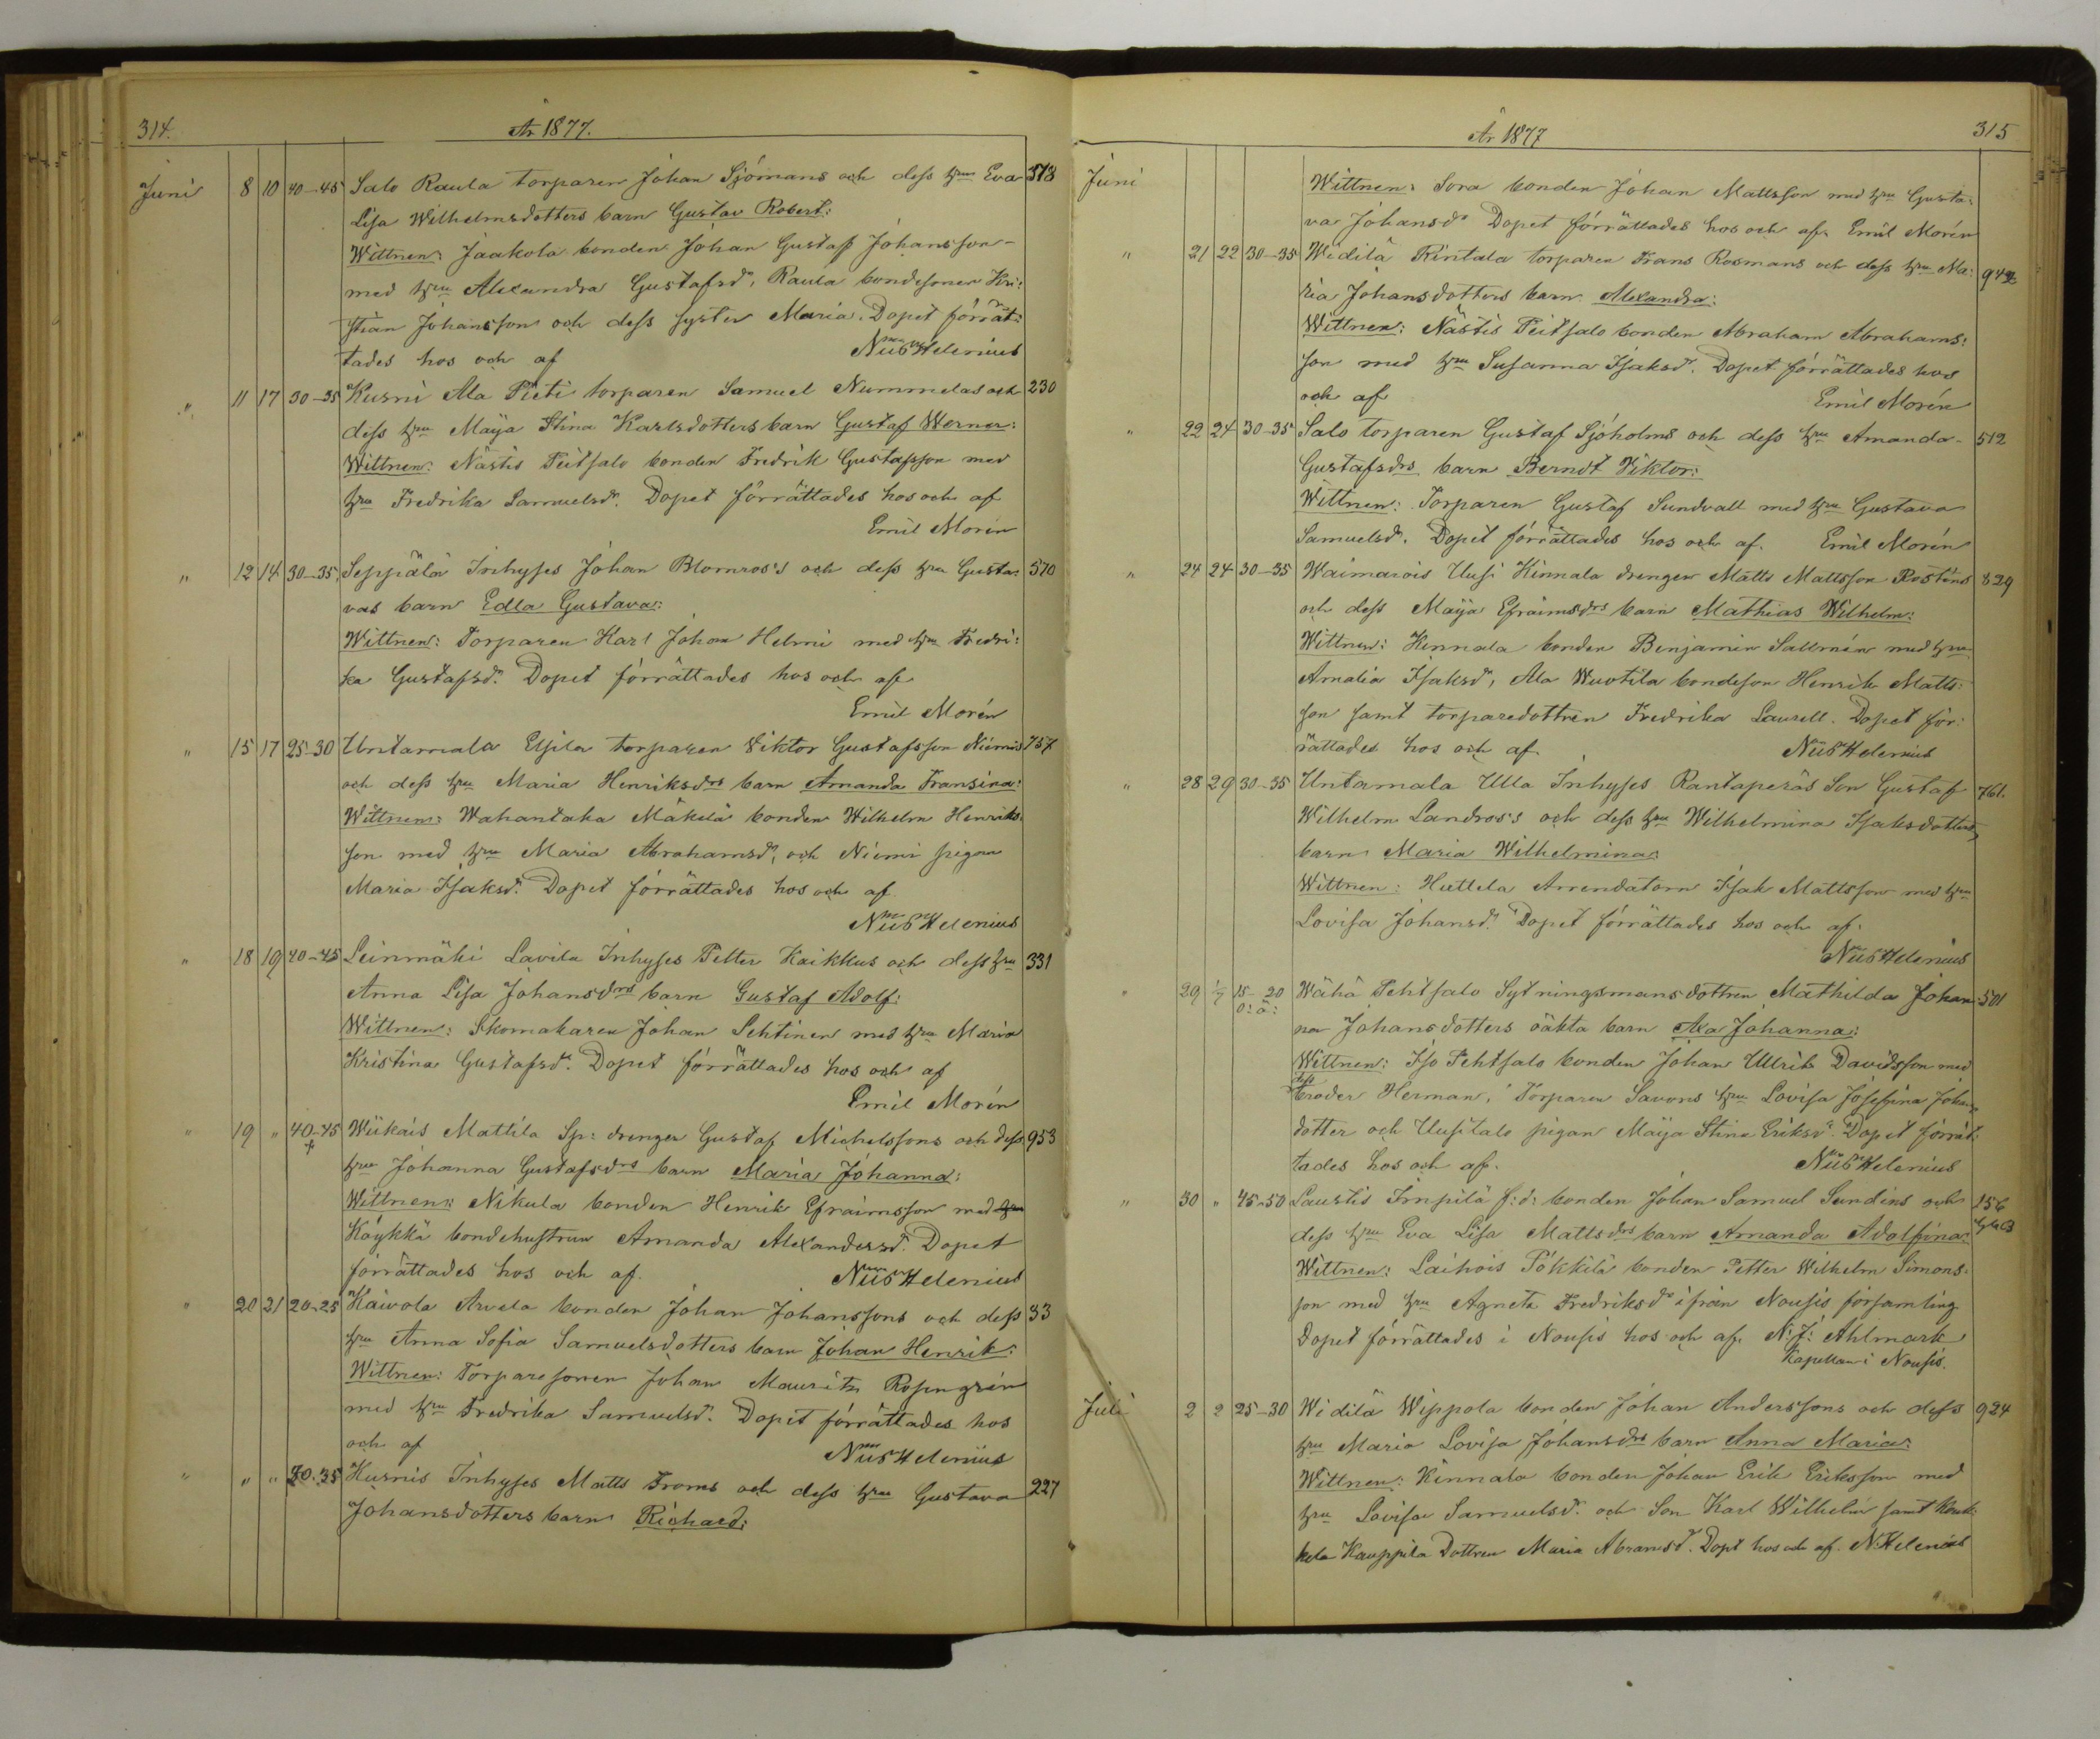 314. År 1877.
Juni 8 10 40-45 Salo Raula torparen Johan Sjömans och dess hru Eva 373
Lisa Wilhelmsdotters barn Gustav Robert:
Wittnen: Jaakola bonden Johan Gustaf Johansson
med hru Alexandra Gustafsdr, Raula bondesonen Kri:
stian Johansson och dess syster Maria. Dopet förrät:
tades hos och af Nils Helenius
" 11 17 30-35 Kusni Ala Pieti torparen Samuel Nummelas och 230
dess hru Maija Stina Karlsdotters barn Gustaf Werner:
Wittnen: Nästis Peitsalo bonden Fredrik Gustafsson med
hru Fredrika Samuelsdr. Dopet förrättades hos och af
Emil Morén
" 12 14 30-35 Seppälä Inhyses Johan Blomros's och dess hru Gusta: 570
vas barn Edla Gustava:
Wittnen: Torparen Karl Johan Helmi med hru Fredri:
ka Gustafsdr. Dopet förrättades hos och af
Emil Morén
" 15 17 25-30 Untamala Eljila torparen Viktor Gustafsson Niemis 757
och dess hru Maria Henriksdrs barn Amanda Fransina:
Wittnen: Wahantaka Mäkilä bonden Wilhelm Henriks:
son med hru Maria Abrahamsdr, och Niemi pigan
Maria Isaksdr. Dopet förrättades hos och af
Nils Helenius
" 18 19 40-45 Leinmäki Lavila Inhyses Petter Kaikkus och dess hru 331
Anna Lisa Johansdrs barn Gustaf Adolf:
Wittnen: Skomakaren Johan Lehtinen med hru Maria
Kristina Gustafsdr. Dopet förrättades hos och af
Emil Morén
" 19 " 40-45 Wiikais Mattila Sp: drengen Gustaf Michelssons och dess 953
hru Johanna Gustafsdrs barn Maria Johanna:
Wittnen: Nikula bonden Henrik Efraimsson med hru
Köykkä bondehustrun Amanda Alexandersdr. Dopet
förrättades hos och af Nils Helenius
" 20 21 20-25 Kaivola Arvela bonden Johan Johanssons och dess 33
hru Anna Sofia Samuelsdotters barn Johan Henrik:
Wittnen: Torparesonen Johan Mauritz Rosengrén
med hru Fredrika Samuelsdr. Dopet förrättades hos
och af Nils Helenius
" " " 30-35 Kusnis Inhyses Matts Froms och dess hru Gustava 227
Johansdotters barn Richard:
År 1877 315
Juni Wittnen: Sora bonden Johan Mattsson med hru Gusta:
va Johansdr Dopet förrättades hos och af Emil Morén
" 21 22 30-35 Widilä Rintala torparen Frans Rosmans och dess hru Ma: 942
ria Johansdotters barn Alexandra:
Wittnen: Nästis Peitsalo bonden Abraham Abrahams:
son med hru Susanna Isaksdr. Dopet förrättades hos
och af Emil Morén
" 22 24 30-35 Salo torparen Gustaf Sjöholms och dess hru Amanda 512
Gustafsdrs barn Berndt Viktor:
Wittnen: Torparen Gustaf Sundvall med hru Gustava
Samuelsdr. Dopet förrättades hos och af Emil Morén
" 24 24 30-35 Waimarois Uusi Kinnala drengen Matts Mattsson Rosténs 829
och dess Maija Efraimsdrs barn Mathias Wilhelm:
Wittnen: Kinnala bonden Benjamin Sallmén med hru
Amalia Isaksdr, Ala Wuotila bondeson Henrik Matts:
son samt torparedottren Fredrika Laurell. Dopet för:
rättades hos och af Nils Helenius
" 28 29 30-35 Untamala Ulla Inhyses Rantaperäs Son Gustaf 761.
Wilhelm Landros's och dess hru Wilhelmina Isaksdotters
barn Maria Wilhelmina:
Wittnen: Huttela Arrendatorn Isak Mattsson med hru
Lovisa Johansdr. Dopet förrättades hos och af
Nils Helenius
" 29 1/7 15-20 Wähä Pehtsalo Sytningsmansdottren Mathilda Johan: 501
o: ä:
na Johansdotters oäkta barn Axa Johanna:
Wittnen: Iso Pehtsalo bonden Johan Ullrik Davidsson med
dess
broder Herman, Torparen Savons hru Lovisa Josefina Johans
dotter och Uusitalo pigan Maija Stina Eriksdr. Dopet förrät:
tades hos och af. Nils Helenius
" 30 " 45-50 Laustis Impilä f:d: bonden Johan Samuel Sundéns och 156
dess hru Eva Lisa Mattsdrs barn Amanda Adolfina:
Wittnen: Laihois Pökkilä bonden Petter Wilhelm Simons:
son med hru Agneta Fredriksdr ifrån Nousis församling
Dopet förrättades i Nousis hos och af. N: J: Ahlmark
Kapellan i Nousis.
Juli 2 2 25-30 Widilä Wippola bonden Johan Anderssons och dess 924
hru Maria Lovisa Johansdrs barn Anna Maria:
Wittnen: Kinnala bonden Johan Erik Eriksson med
hru Lovisa Samuelsdr. och Son Karl Wilhelm samt
Kauppila Dottren Maria Abramsdr. Dopt hos och af. N: Helenius